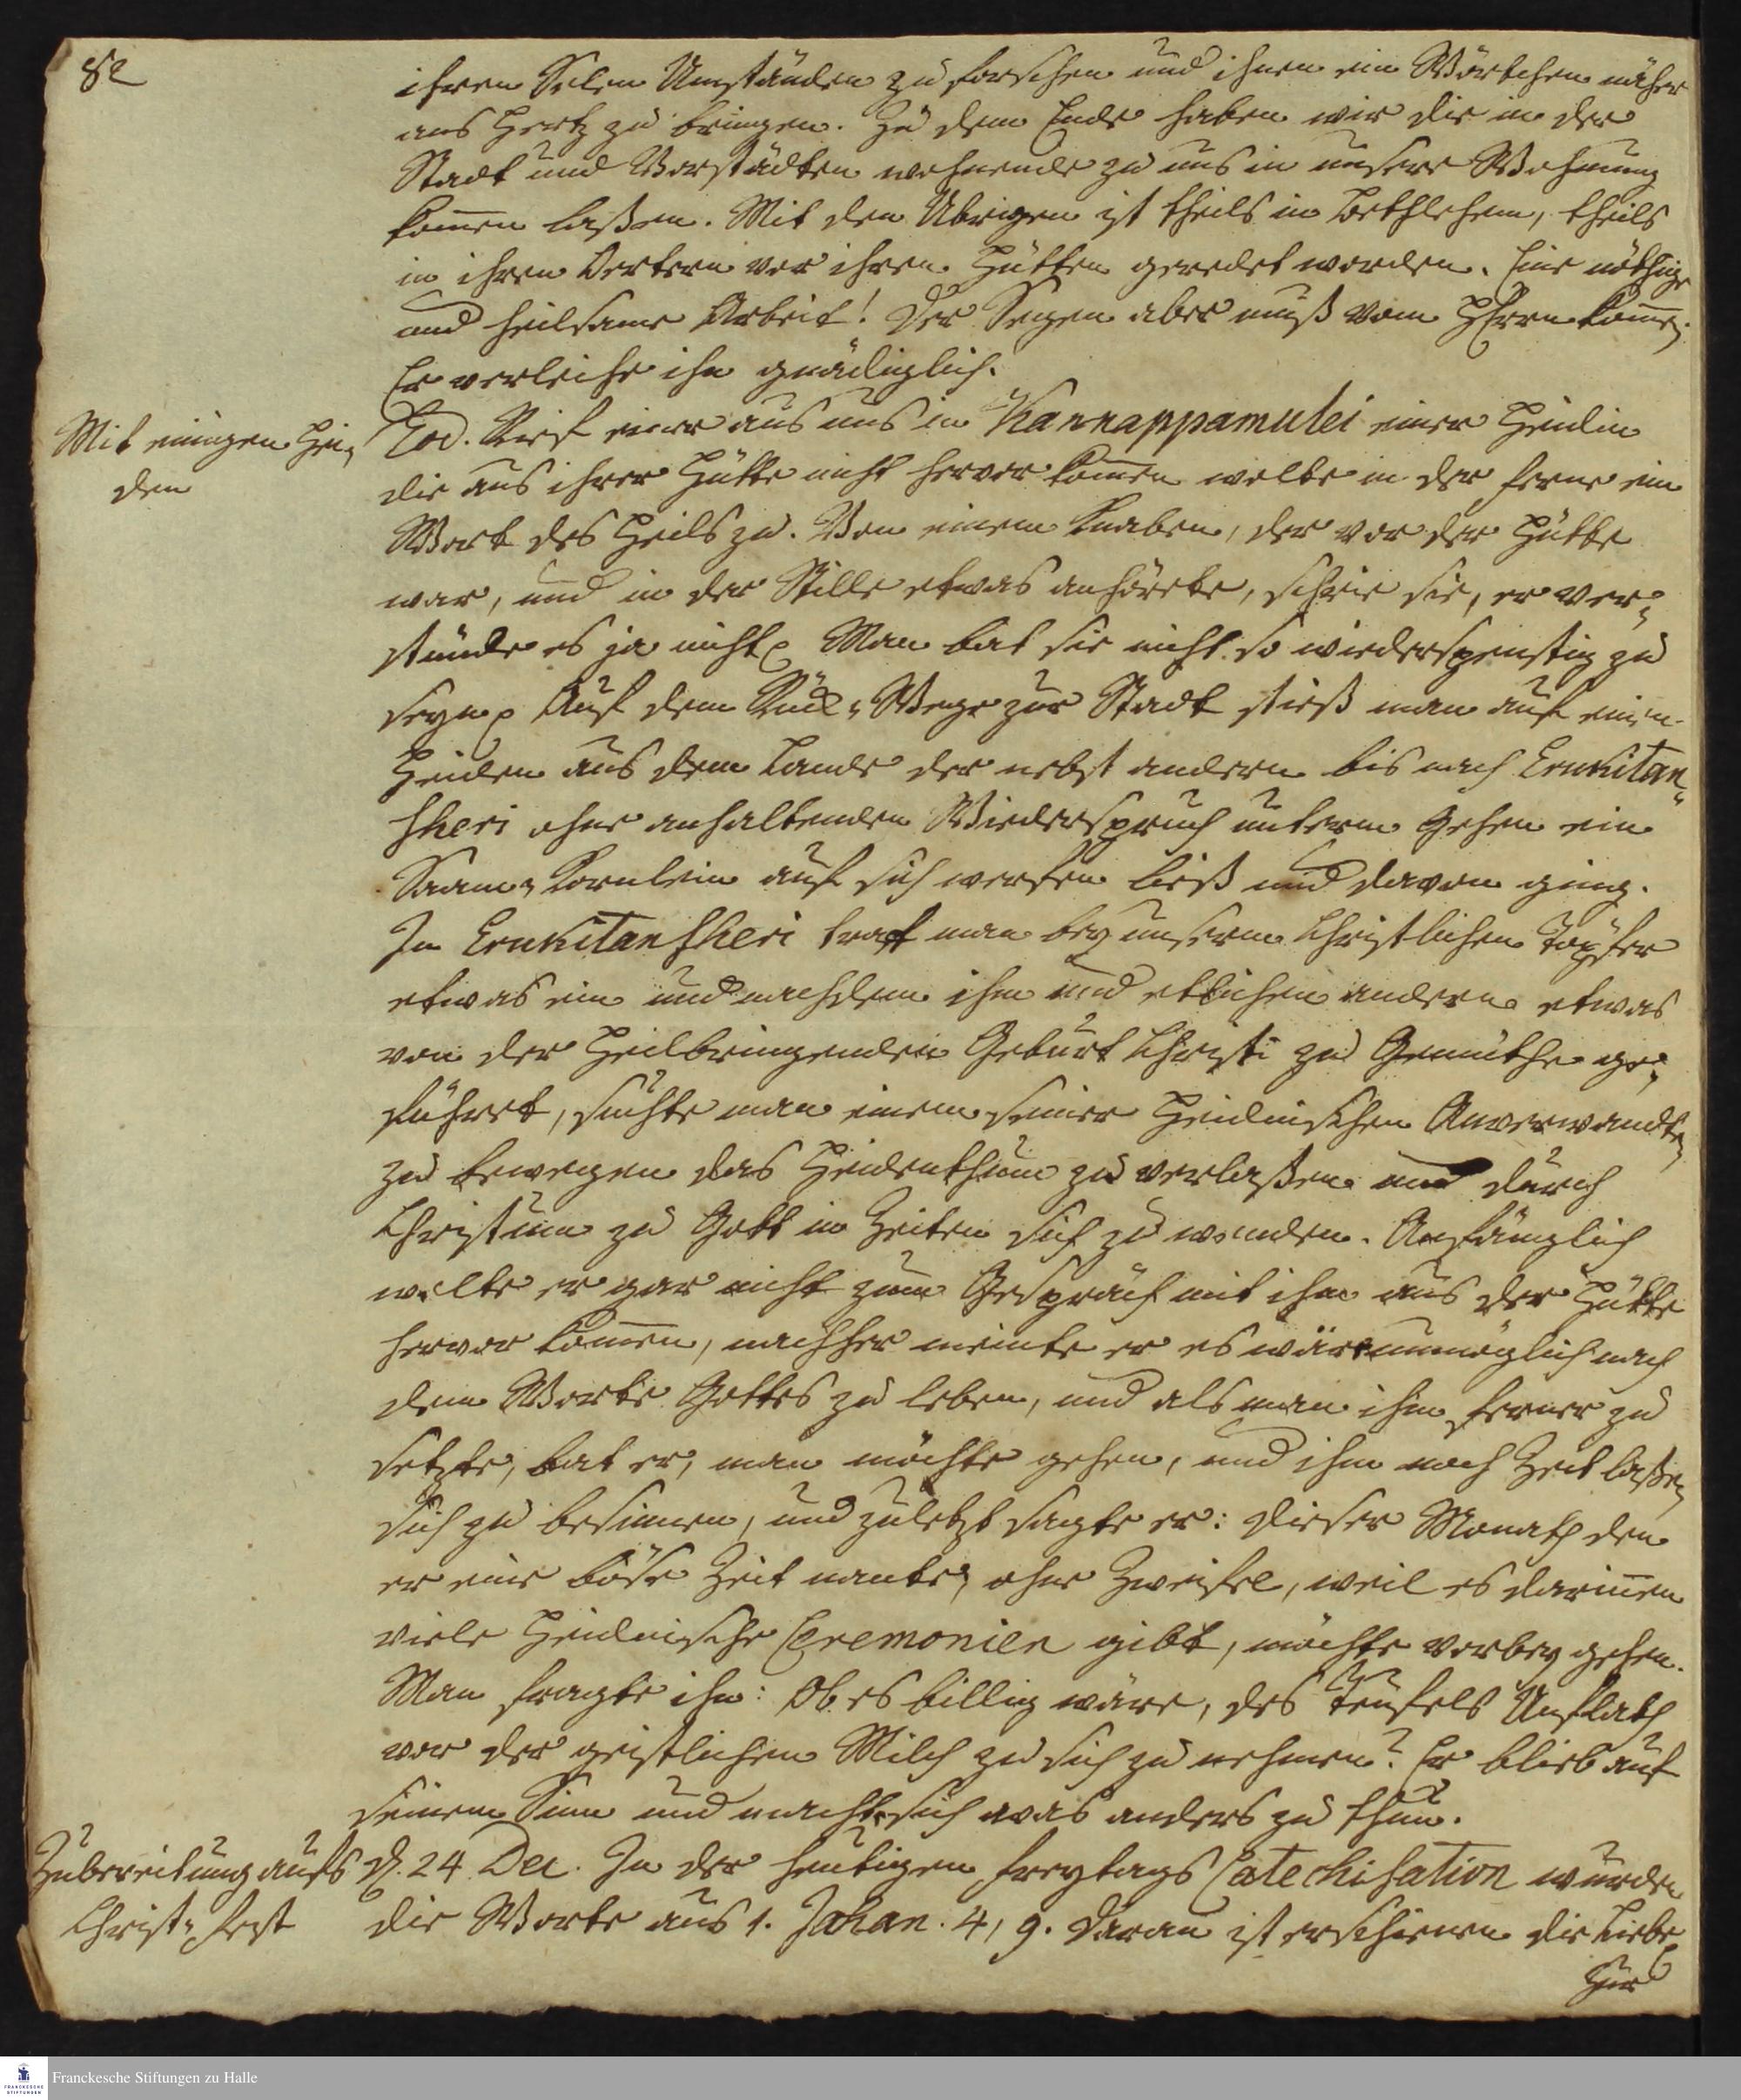 82
ihren Selen Umständen zu forschen und ihnen ein Wörtchen näher
ans Hertz zu bringen. Zu dem Ende haben wir die in der
Stadt und Vorstädten wohnende zu uns in unsere Wohnung
kom̄en laßen. Mit den Übrigen ist theils in Bethlehem, theils
in ihren Oertern vor ihren Hütten geredet worden. Eine nöthige
und heilsame Arbeit! Der Segen aber muß vom HErrn kom̄en.
Er verleihe ihn gnädiglich.
Mit einigen Hei-
den
Eod. Rief einer aus uns in Kannappamulei einer Heidin
die aus ihrer Hütte nicht hervor kom̄en wolte in der ferne ein
Wort des Heils zu. Von einem Knaben, der vor der Hütte
war, und in der Stille etwas anhörte, schrie sie, er ver-
stünde es ja nicht. Man bat sie nicht so wiederspenstig zu
seyn. Auf dem Rück-Wege zur Stadt stieß man auf einen
Heiden aus dem Lande der nebst andern bis nach Erukitan-
sheri ohne anhaltenden Wiederspruch unterm Gehen ein
Saam-Kornlein auf sich werfen ließ und davon ging.
In Erukitansheri traf man bey unserm Christlichen Töpfer
etwas ein und nachdem ihm und etlichen andern etwas
von der Heilbringenden Geburt Christi zu Gemüthe ge-
führet, suchte man einem seiner Heidnischen Anverwandten
zu bewegen das Heidenthum zu verlaßen und durch
Christum zu Gott in Zeiten sich zu wenden. Anfänglich
wolte er gar nicht zum Gespräch mit ihm aus der Hütte
hervor kom̄en, nachher meinte er es wäre unmöglich nach
dem Worte Gottes zu leben, und als man ihm ferner zu
setzte, bat er, man möchte gehen, und ihm noch Zeit laßen
sich zu besinnen, und zuletzt sagte er: dieser Monath den
er eine böse Zeit nante, ohne Zweifel, weil es darin̄en
viele Heidnische Ceremonien gibt, möchte vorbey gehen.
Man fragte ihn: Ob es billig wäre, des Teufels Unflath
vor der geistlichen Milch zu sich zu nehmen? Er blieb auf
seinem Sinn und machte sich was anders zu thun.
Zubereitung aufs
Christ-fest
d. 24 Dec. In der heutigen freytags Catechisation wurden
die Worte aus 1. Johan. 4, 9. Daran ist erschienen die Liebe
Franckesche Stiftungen zu Halle
FRANCKESCHE
STIFTUNGEN